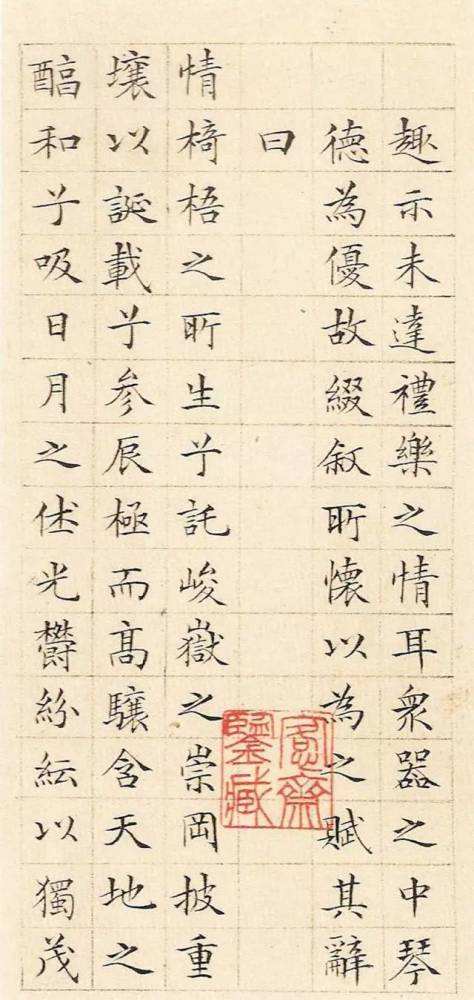 趣示未達禮樂之情耳眾器之中琴
德為優故綴叙所懷以為之賦其辭
曰
情椅梧之所生兮託峻嶽之崇岡披重
壤以誕載兮参辰極而髙驤含天地之
醕和兮吸日月之休光欝紛紜以獨茂
愙齋
鑒藏